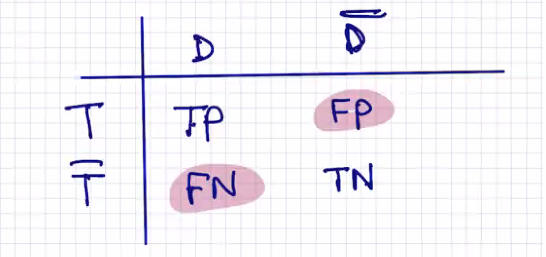 D D̅
T TP FP
T̅ FN TN